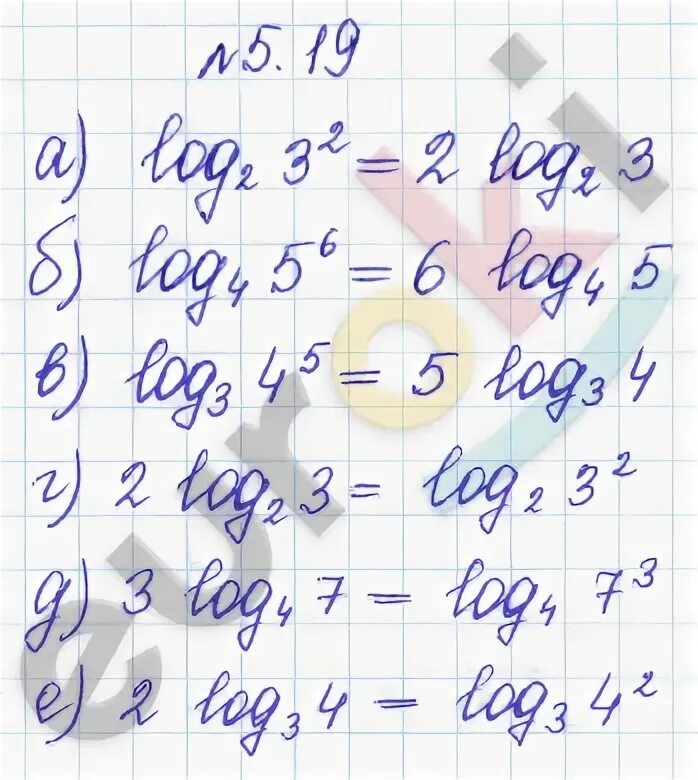 №5.19
а) log₂ 3² = 2 log₂ 3
б) log₄ 5⁶ = 6 log₄ 5
в) log₃ 4⁵ = 5 log₃ 4
г) 2 log₂ 3 = log₂ 3²
д) 3 log₄ 7 = log₄ 7³
е) 2 log₃ 4 = log₃ 4²
euroki